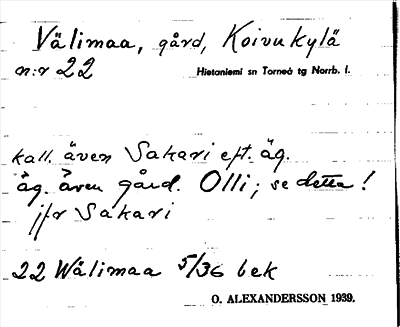 Välimaa, gård, Koivukylä
n:r 22 Hietaniemi sn Torneå tg Norrb. l.
kall. även Sakari eft. äg.
äg. även gård. Olli; se detta!
jfr Sakari
22 Wälimaa 5/36 bek
O. ALEXANDERSSON 1939.